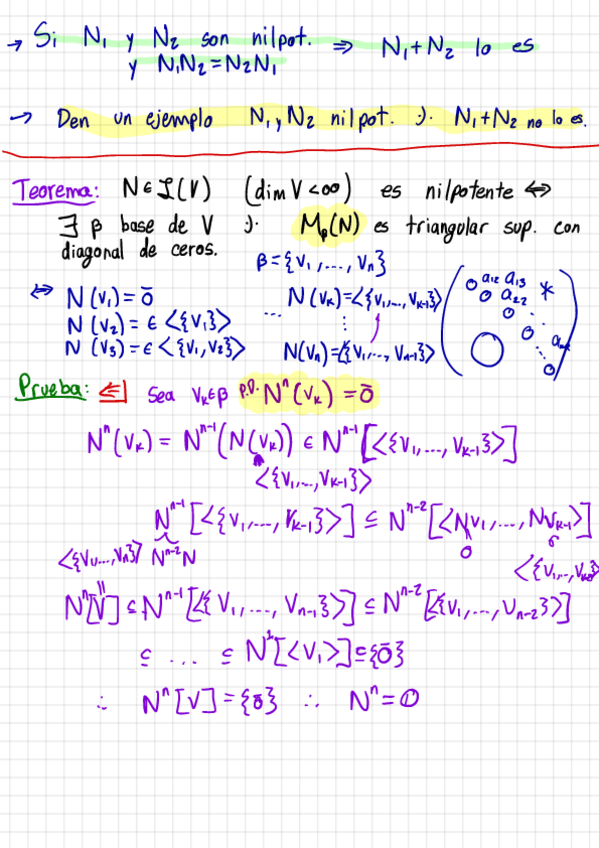 → Si N₁ y N₂ son nilpot. ⇒ N₁+N₂ lo es
y N₁N₂=N₂N₁
→ Den un ejemplo N₁ y N₂ nilpot. ⋺. N₁+N₂ no lo es.
Teorema: N∈ℒ(V) (dim V<∞) es nilpotente ⟺
∃ β base de V ⋺. M_β(N) es triangular sup. con
diagonal de ceros.
β={v₁,...,vₙ}
⟺ N(v₁)=ō
N(v₂)= ∈ <{v₁}>
N(v₃)= ∈ <{v₁,v₂}>
... N(vₖ)=<{v₁,...,vₖ₋₁}>
⋮
N(vₙ)=<{v₁,...,vₙ₋₁}>
0 a₁₂ a₁₃
0 a₂₂ *
0
0
0 0
Prueba: ⇐| Sea vₖ∈β P.D. Nⁿ(vₖ)=ō
Nⁿ(vₖ) = Nⁿ⁻¹(N(vₖ)) ∈ Nⁿ⁻¹[<{v₁,...,vₖ₋₁}>]
<{v₁,...,vₖ₋₁}>
Nⁿ⁻¹[<{v₁,...,vₖ₋₁}>] ⊆ Nⁿ⁻²[<Nv₁,...,Nvₖ₋₁>]
<{v₁,...,vₙ}> Nⁿ⁻²N 0
Nⁿ[V] ⊆ Nⁿ⁻¹[<{v₁,...,vₙ₋₁}>] ⊆ Nⁿ⁻²[<{v₁,...,vₙ₋₂}>]
⊆ ... ⊆ N¹[<v₁>] ⊆ {ō}
∴ Nⁿ[V]={ō} ∴ Nⁿ=𝟘